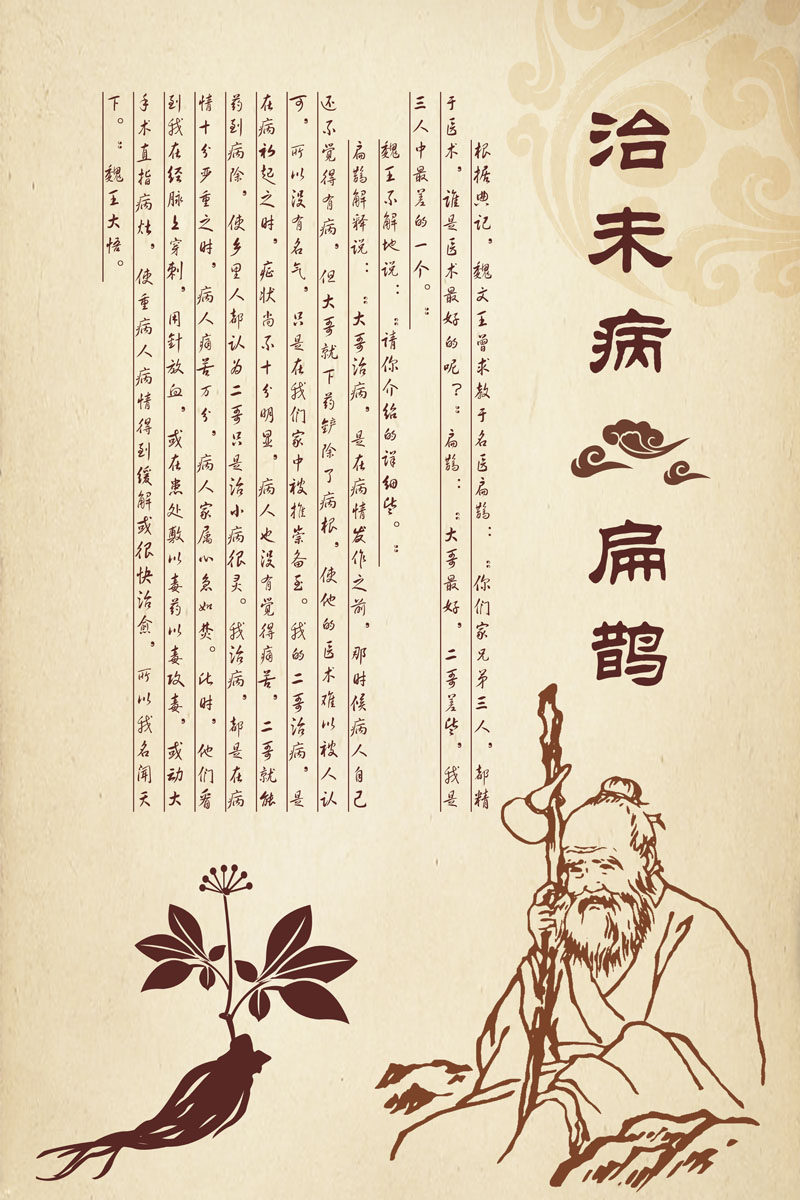 治未病
扁鹊
根据典记，魏文王曾求教于名医扁鹊：“你们家兄弟三人，都精
于医术，谁是医术最好的呢？”扁鹊：“大哥最好，二哥差些，我是
三人中最差的一个。”
魏王不解地说：“请你介绍的详细些。”
扁鹊解释说：“大哥治病，是在病情发作之前，那时候病人自己
还不觉得有病，但大哥就下药铲除了病根，使他的医术难以被人认
可，所以没有名气，只是在我们家中被推崇备至。我的二哥治病，是
在病初起之时，症状尚不十分明显，病人也没有觉得痛苦，二哥就能
药到病除，使乡里人都认为二哥只是治小病很灵。我治病，都是在病
情十分严重之时，病人痛苦万分，病人家属心急如焚。此时，他们看
到我在经脉上穿刺，用针放血，或在患处敷以毒药以毒攻毒，或动大
手术直指病灶，使重病人病情得到缓解或很快治愈，所以我名闻天
下。”魏王大悟。